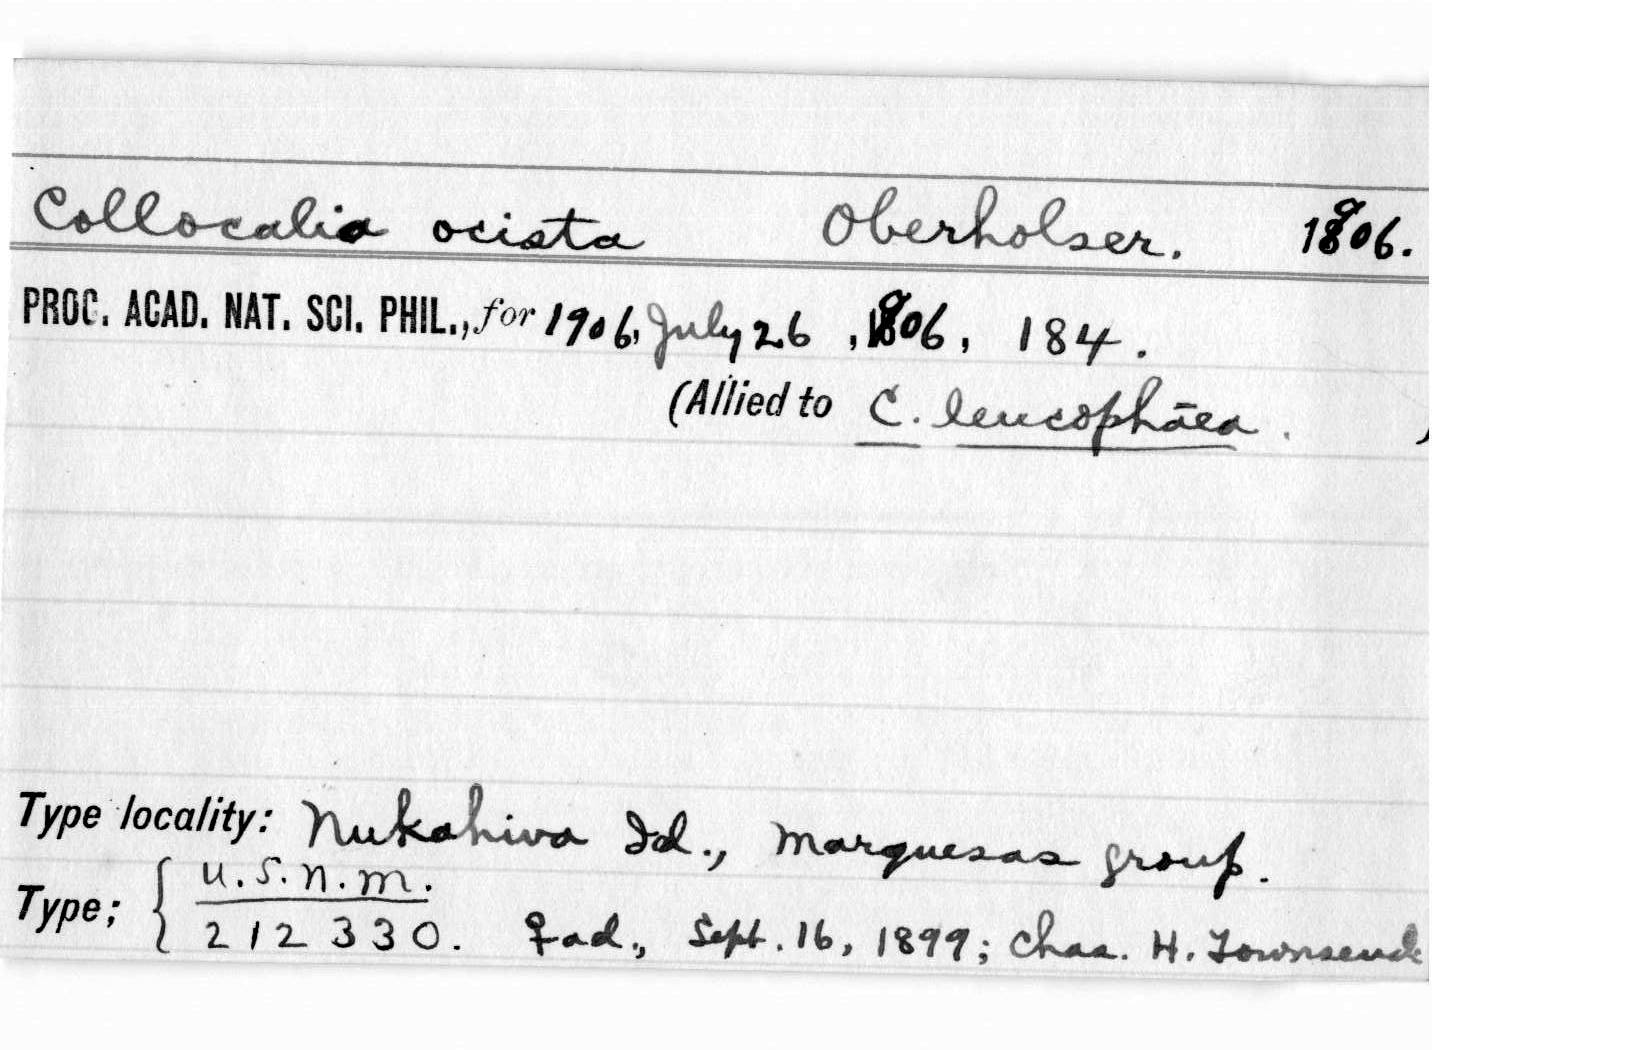 Collocalia ocista Oberholser. 1906.
PROC. ACAD. NAT. SCI. PHIL., for 1906, July 26, 1906, 184.
(Allied to C. leucophāea. )
Type locality: Nukahiva Id., Marquesas group.
U.S.N.M.
Type; { 212330. ♀ ad., Sept. 16, 1899; Chas. H. Townsend